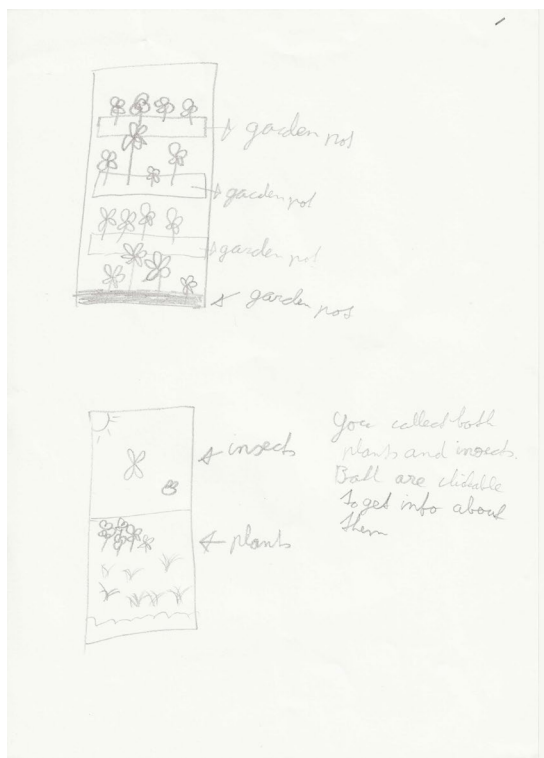 garden pot
garden pot
garden pot
garden pot
insects
plants
You collect both
plants and insects.
Both are clickable
to get info about
them